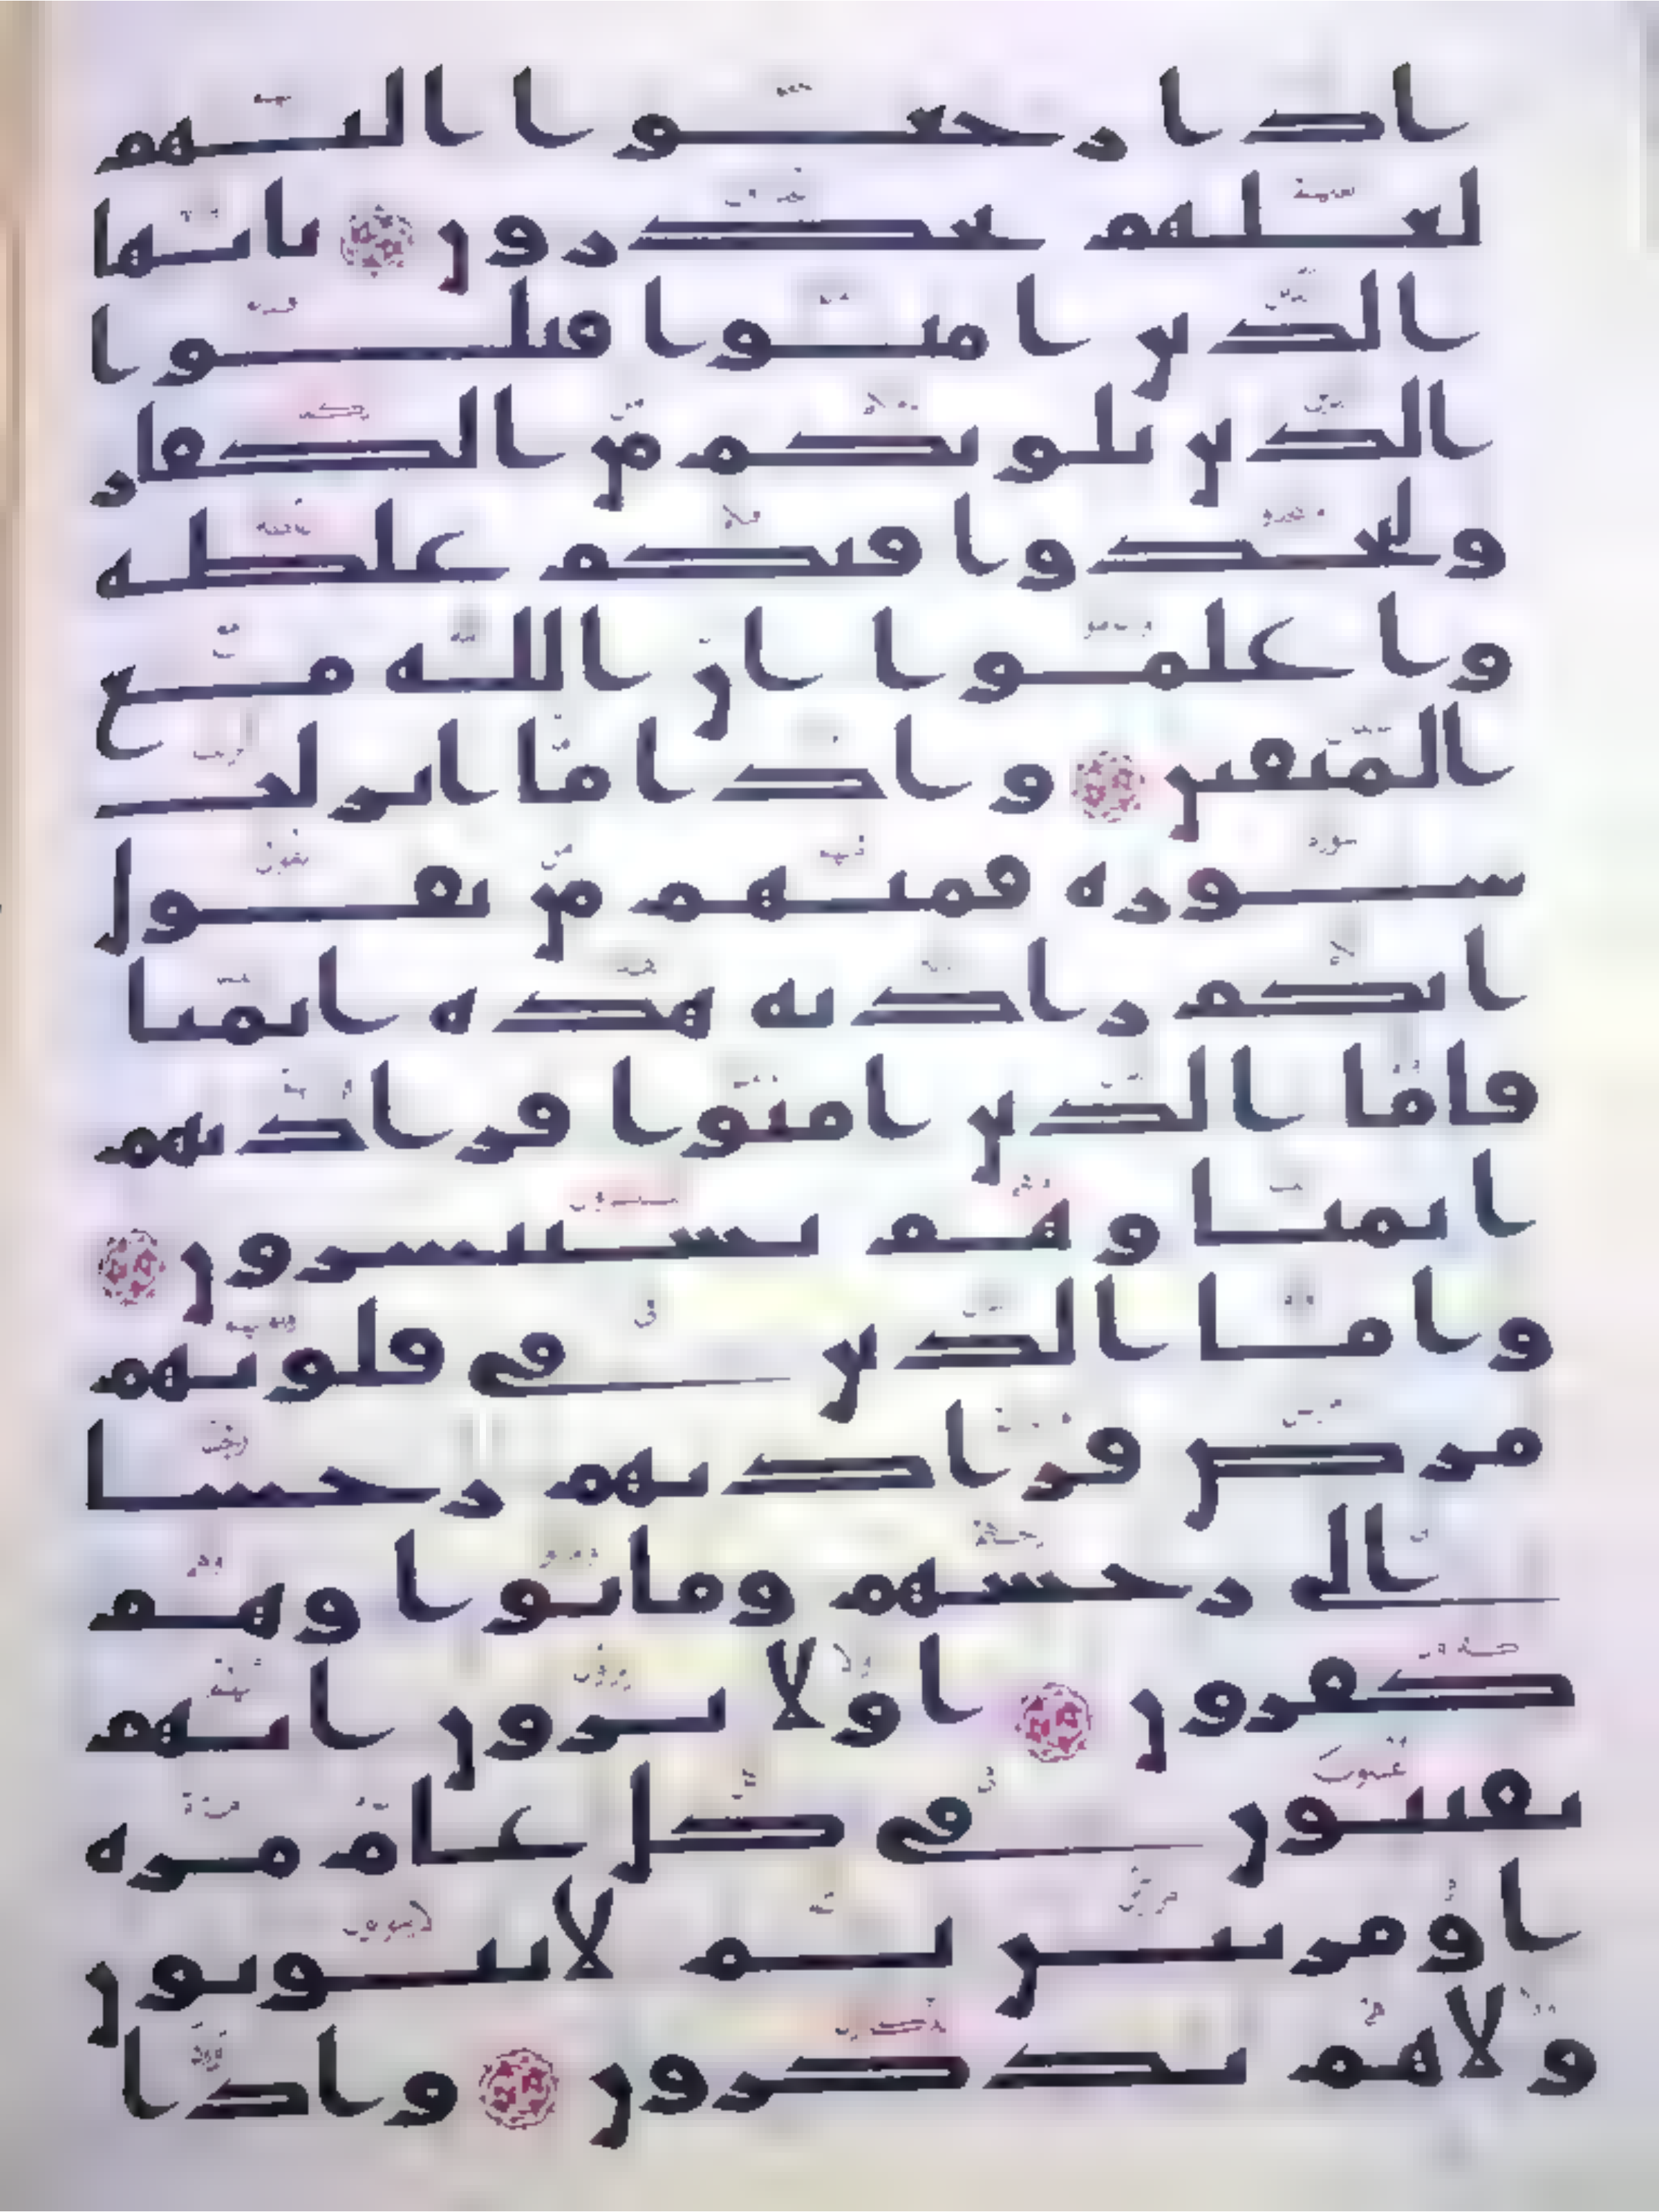 اذا رجعوا اليهم
لعلهم يحذرون يايها
الذين امنوا قتلوا
الذين يلونكم من الكفار
وليجدوا فيكم غلظة
واعلموا ان الله مع
المتقين واذا ما انزلت
سورة فمنهم من يقول
ايكم زادته هذه ايمنا
فاما الذين امنوا فزادتهم
ايمنا وهم يستبشرون
واما الذين في قلوبهم
مرض فزادتهم رجسا
الى رجسهم وماتوا وهم
كفرون اولا يرون انهم
يفتنون في كل عام مرة
او مرتين ثم لا يتوبون
ولا هم يذكرون واذا